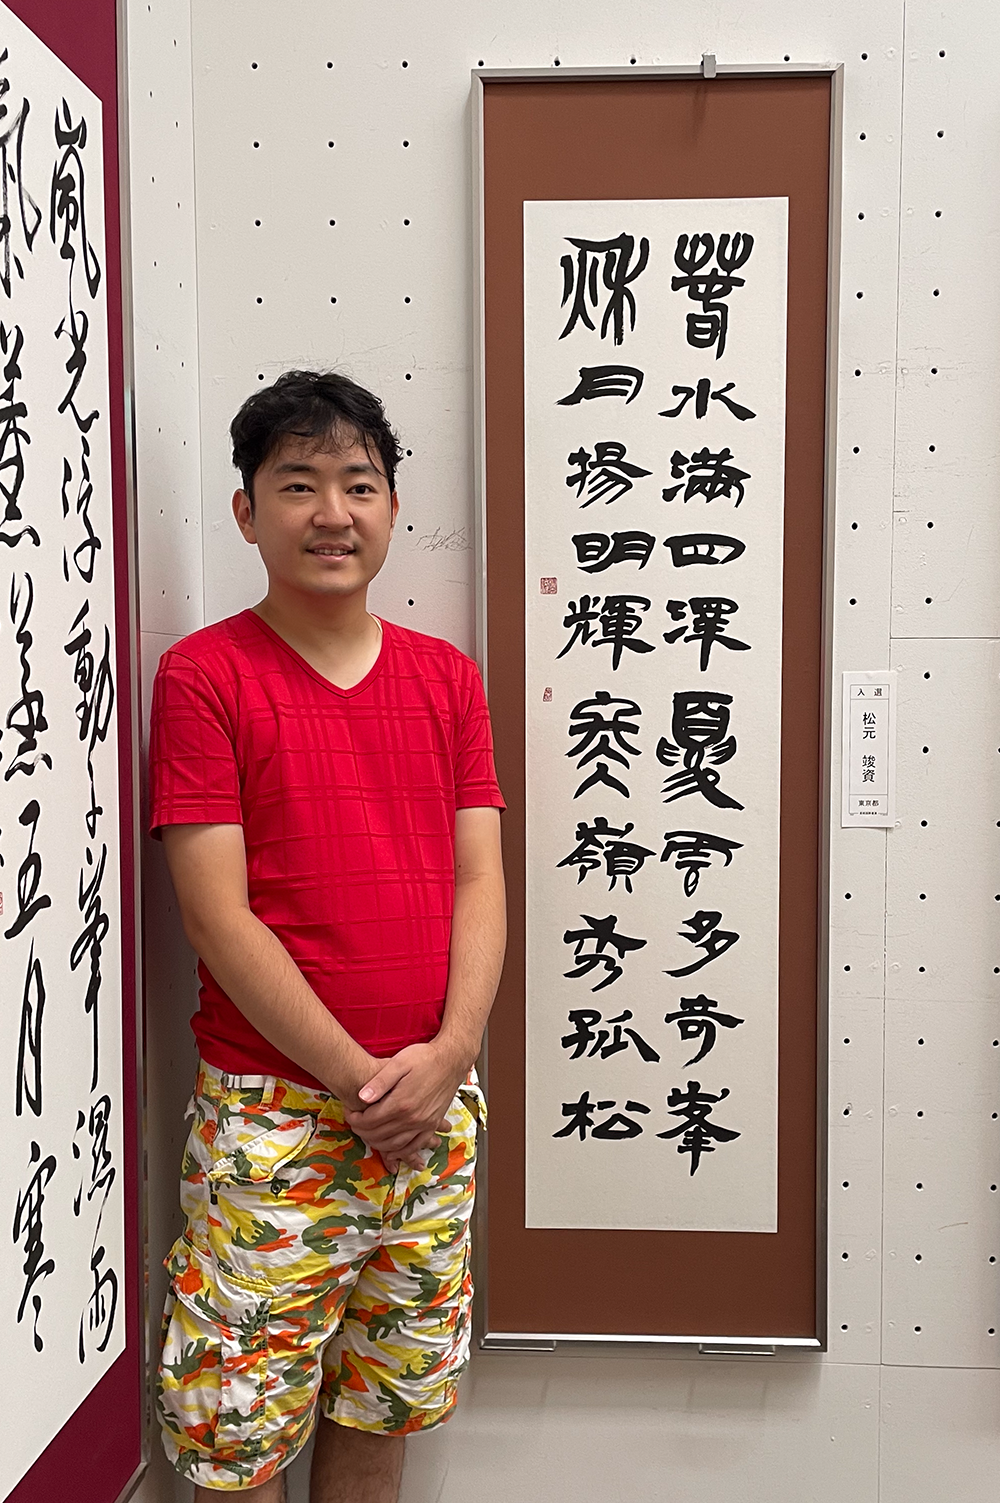 春水滿四澤夏雲多奇峯
秋月揚明輝冬嶺秀孤松
入選
松元 竣資
東京都
嵐光浮動千峯濕雨
五月寒